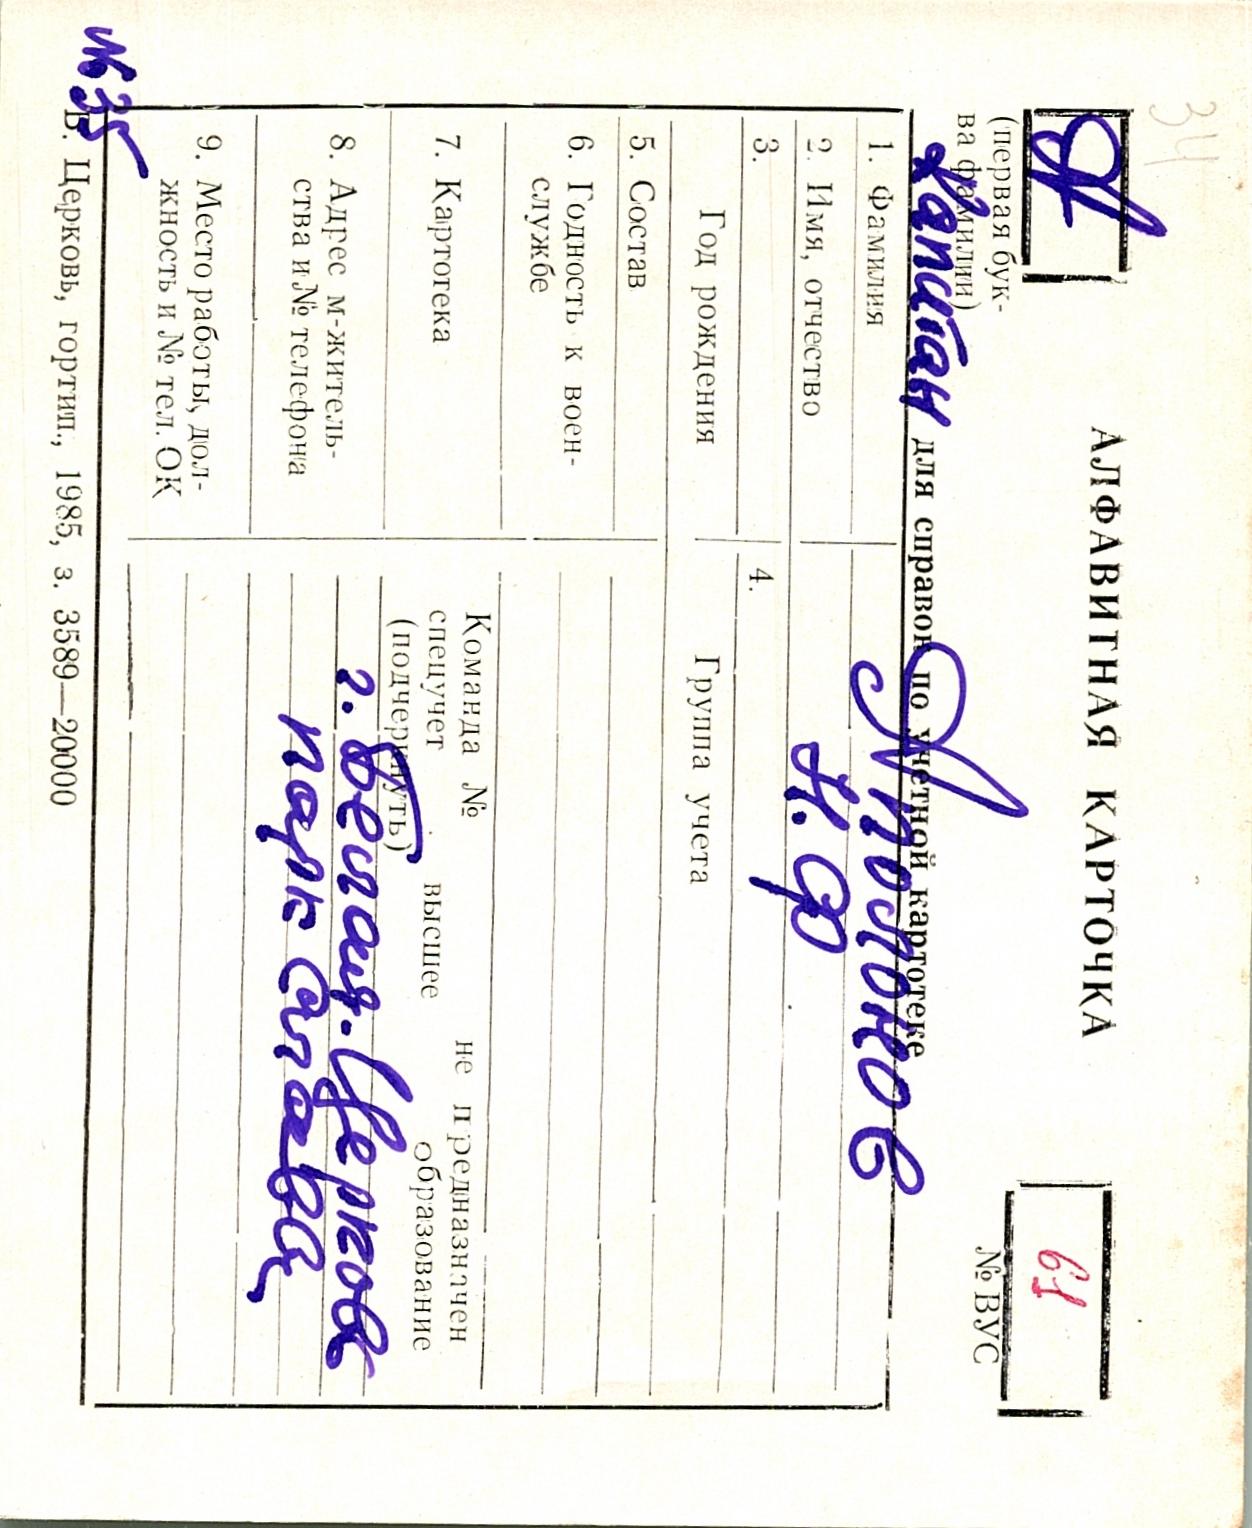 34
А
(первая бук-
ва фамилии)
АЛФАВИТНАЯ КАРТОЧКА
61
№ ВУС
Капитан
для справок по учетной картотеке
1. Фамилия
Аполонов
2. Имя, отчество
Н. Ф
3.
Год рождения
4.
Группа учета
5. Состав
6. Годность к воен-
службе
7. Картотека
Команда №
не предназначен
спецучет
высшее
образование
(подчеркнуть)
8. Адрес м-житель-
ства и № телефона
г. Белая-Церковь
парк слава
9. Место работы, дол-
жность и № тел. ОК
№ 35
Б. Церковь, гортип., 1985, з. 3589—20000